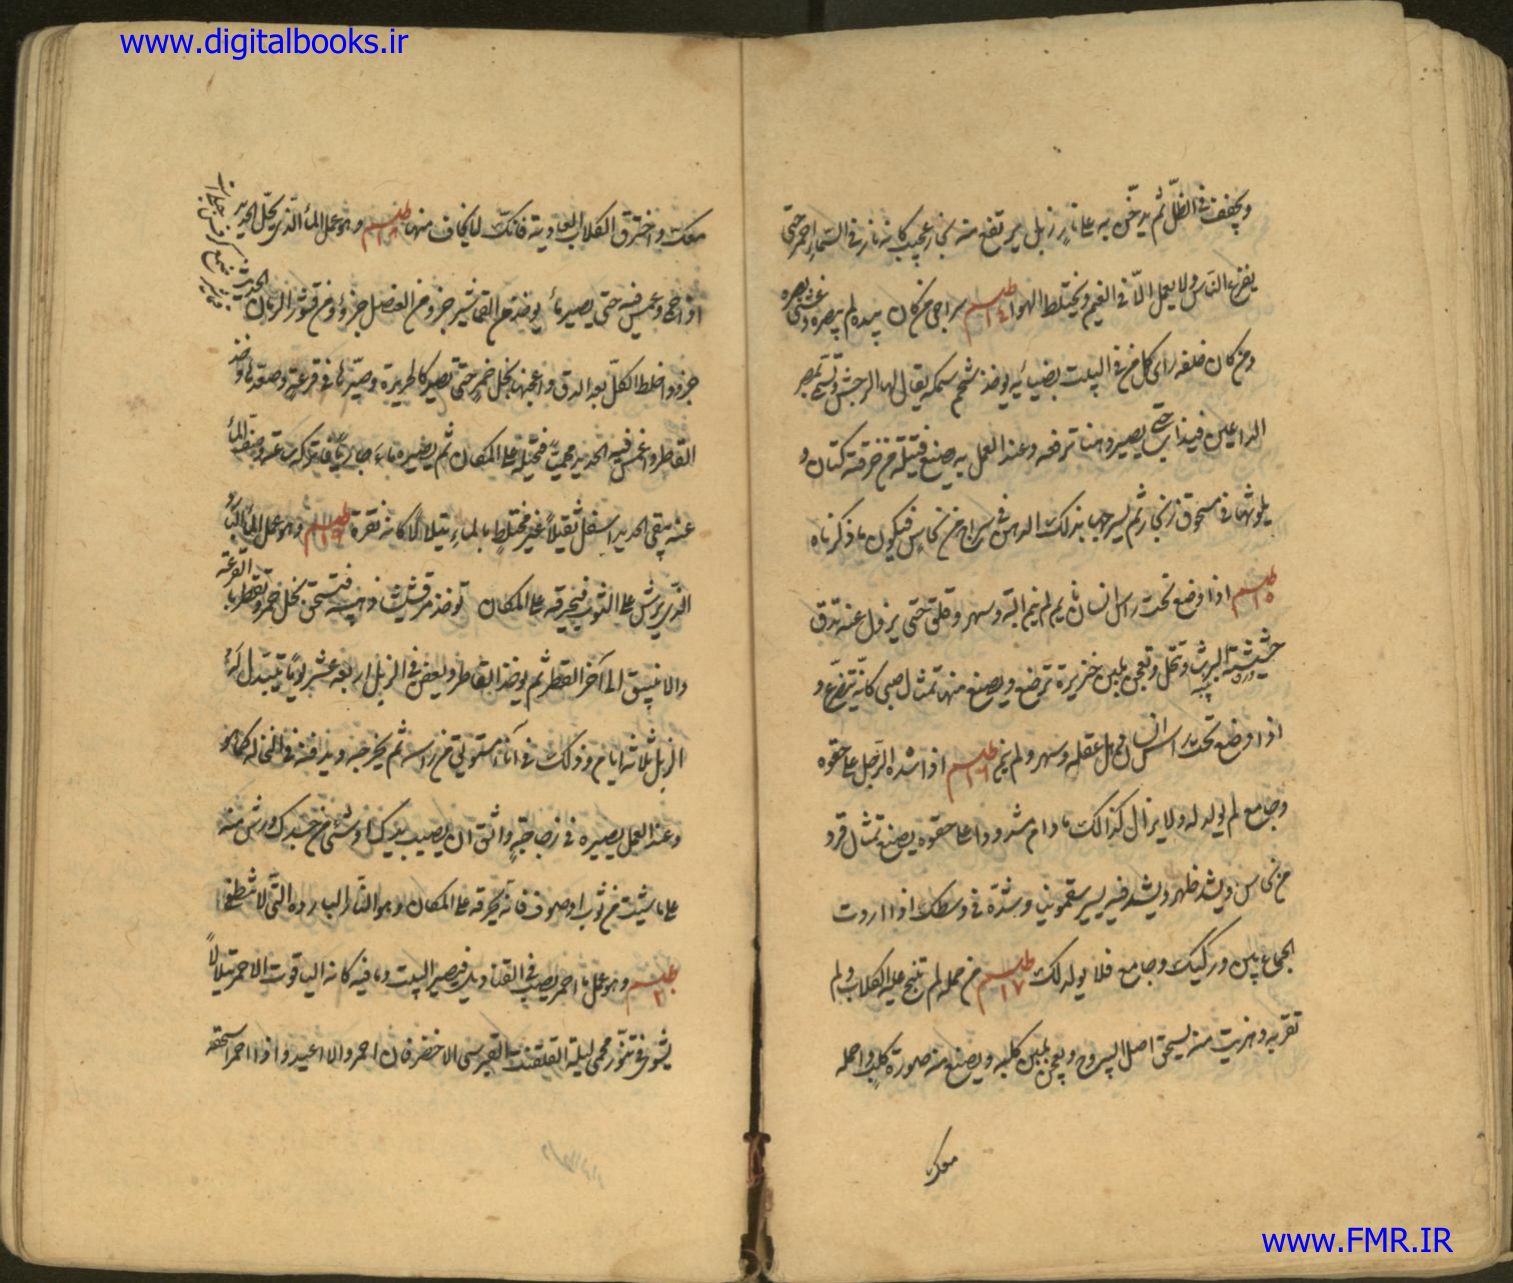 www.digitalbooks.ir
ويجفف في الظل ثم يدخن به على نار زبل يرتفع منه بخار عجيب كانه نار في السماء احمر حتى
يفزع الناس ولا يعمل الا في الغيم ويختلط الهوا طلسم ١٤ سراج من كان بيده لم يبصره وغشى بصره
ومن كان خلفه راى كل من في البيت بضيائه يوخذ شحم سمكة يقال لها
فيذاب حتى يصير دهنا ترفعه وعند العمل به يصنع فتيلة من خرقة كتان و
يلوثها في مسحوق زنجار ثم يسرجها بذلك الدهن في سراج من نحاس فيكون ما ذكرناه
طلسم ١٥ اذا وضع تحت راس انسان نايم لم ينم البتة وسهر وقلق حتى يزول عنه تدق
وتنخل وتعجن بلبن خنزيرة ترضع ويصنع منها تمثال صبي كانه يتضرع و
اذا وضع تحت راس انسان عقله وسهر ولم ينم طلسم ١٦ اذا شده الرجل على حقوه
وجامع لم يولد له ولا يزال كذلك ما دام مشدودا على حقوه يصنع تمثال قرد
من نحاس ويثقب ظهره ويشد فيه يسير سقمونيا وشده في وسطك اذا اردت
الجماع بين وركيك وجامع فلا يولد لك طلسم ١٧ من حمله لم تنبح عليه الكلاب ولم
تقربه وهربت منه يسحق اصل اليبروح ويعجن بلبن كلبة ويصنع منه صورة كلب واحمله
معك
معك واخترق الكلاب العاوية فانك لا تخاف منها طلسم ١٨ وهو عمل الماء الذي يحل الحديد
اذا حمي وغمس فيه حتى يصير ماء يوخذ من جزو من العفص جزؤ ومن قشور الرمان الحديث
جزو واخلط الكل بعد الدق واعجنها بخل خمر حتى تصير كالحريرة وصيرها في قرعة وصعدها وخذ
القاطر واغمس فيه الحديد محميا فتحله على المكان ثم يصيره ماء جاريا فان تركته وصفيت الماء
عنه بقي الحديد اسفل ثقيلا غير مختلط بالماء يتلالا كانه نقرة طلسم ١٩ وهو عمل الماء البارد
الذي يرش على الثوب فيحرقه على المكان توخذ مرقشيثا ذهبية فتسحق بخل خمر وتقطر بالقرعة
والانبيق الى آخر القطر ثم يوخذ القاطر ويعفن في الزبل اربعة عشر يوما يتبدل له
الزبل ثلاثة ايام وذلك في اناء مستوثق من راسه ثم يخرجه ويدفنه في النخالة كما هو
وعند العمل يصيره في زجاجة واتق ان يصيب يديك او شئ من جسدك ورش منه
على ما شئت من ثوب او صوف فانه يحرقه على المكان وهو النار الباردة التي لا تطفى
طلسم ٢٠ وهو عمل ماء احمر يصب في القناديل فيصير البيت وما فيه كانه الياقوت الاحمر يتلالا
يشوى في تنور محمي ليلة القلقنت القبرسي الاخضر فان احمر والا اعيد واذا احمر اسحقه
www.FMR.IR